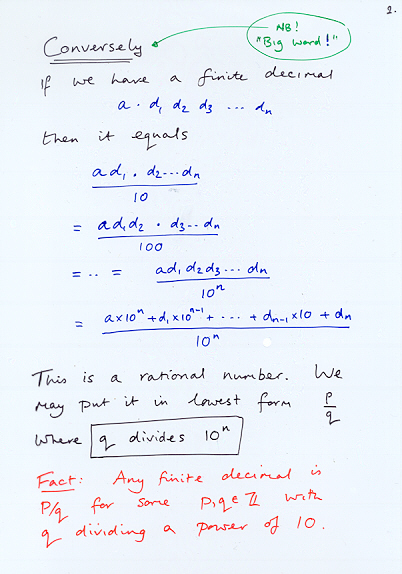 2.
NB!
"Big word!"
Conversely
If we have a finite decimal
a . d₁ d₂ d₃ ... dₙ
then it equals
ad₁ . d₂ ... dₙ
10
= ad₁d₂ . d₃ .. dₙ
100
= .. = ad₁d₂d₃ ... dₙ
10ⁿ
= a×10ⁿ + d₁×10ⁿ⁻¹ + ... + dₙ₋₁×10 + dₙ
10ⁿ
This is a rational number. We
may put it in lowest form p/q
where q divides 10ⁿ
Fact: Any finite decimal is
P/q for some p,q ∈ ℤ with
q dividing a power of 10.